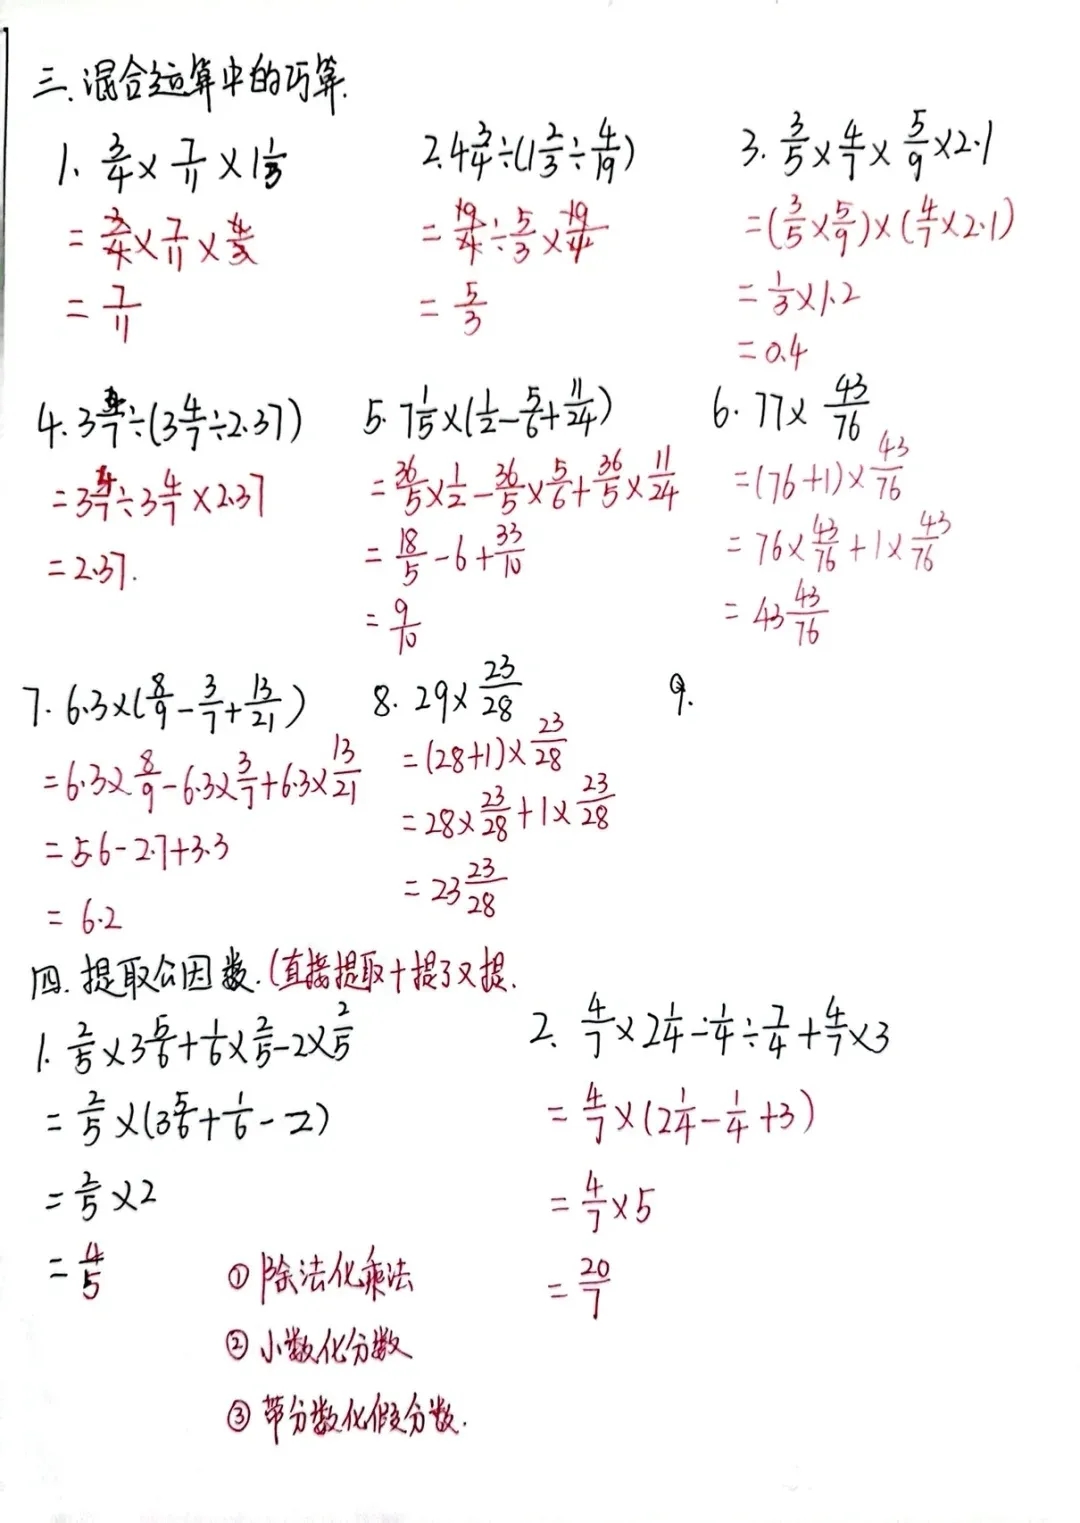 三.混合运算中的巧算.
1. 3/4 × 7/11 × 1 1/3
= 3/4 × 7/11 × 4/3
= 7/11
2. 4 3/4 ÷ (1 2/3 ÷ 4/19)
= 19/4 ÷ 5/3 × 19/4
= 5/3
3. 3/5 × 4/7 × 5/9 × 2.1
= (3/5 × 5/9) × (4/7 × 2.1)
= 1/3 × 1.2
= 0.4
4. 3 4/7 ÷ (3 4/7 ÷ 2.37)
= 3 4/7 ÷ 3 4/7 × 2.37
= 2.37.
5. 7 1/5 × (1/2 - 5/6 + 11/24)
= 36/5 × 1/2 - 36/5 × 5/6 + 36/5 × 11/24
= 18/5 - 6 + 33/10
= 9/10
6. 77 × 43/76
= (76+1) × 43/76
= 76 × 43/76 + 1 × 43/76
= 43 43/76
7. 6.3 × (8/9 - 3/7 + 13/21)
= 6.3 × 8/9 - 6.3 × 3/7 + 6.3 × 13/21
= 5.6 - 2.7 + 3.3
= 6.2
8. 29 × 23/28
= (28+1) × 23/28
= 28 × 23/28 + 1 × 23/28
= 23 23/28
9.
四.提取公因数.(直接提取+提了又提.
1. 2/5 × 3 5/6 + 1/6 × 2/5 - 2 × 2/5
= 2/5 × (3 5/6 + 1/6 - 2)
= 2/5 × 2
= 4/5
2. 4/7 × 2 1/4 - 1/4 ÷ 7/4 + 4/7 × 3
= 4/7 × (2 1/4 - 1/4 + 3)
= 4/7 × 5
= 20/7
① 除法化乘法
② 小数化分数
③ 带分数化假分数.